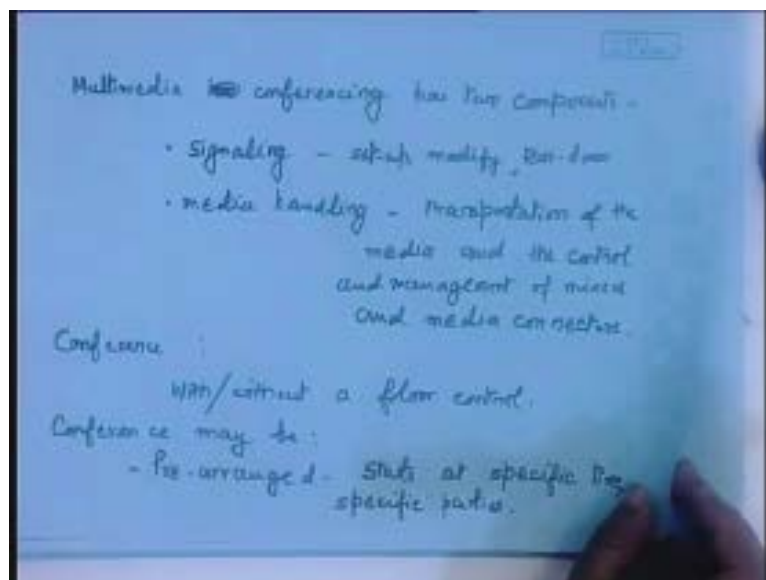 Multimedia conferencing has two components -
• Signaling - set-up, modify, tear-down
• media handling - transportation of the
media and the control
and management of mixers
and media connections.
Conference :
With/without a floor control.
Conference may be :
- Pre-arranged - starts at specific time,
specific parties.